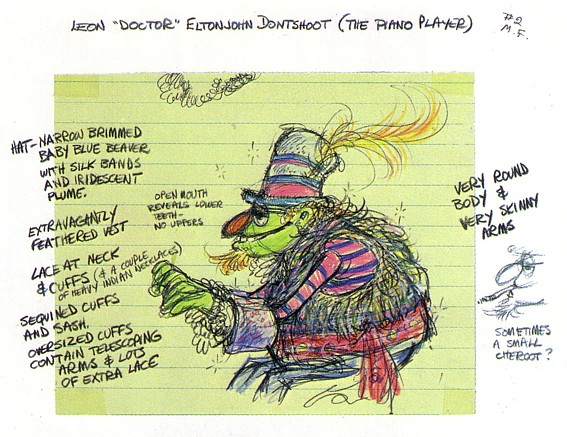 LEON "DOCTOR" ELTONJOHN DONTSHOOT (THE PIANO PLAYER)
#2
M.F.
HAT-NARROW BRIMMED
BABY BLUE BEAVER
WITH SILK BANDS
AND IRIDESCENT
PLUME.
EXTRAVAGANTLY
FEATHERED VEST
LACE AT NECK
& CUFFS (& A COUPLE
OF HEAVY INDIAN NECKLACES)
SEQUINED CUFFS
AND SASH.
OVERSIZED CUFFS
CONTAIN TELESCOPING
ARMS & LOTS
OF EXTRA LACE
OPEN MOUTH
REVEALS LOWER
TEETH-
NO UPPERS
VERY ROUND
BODY &
VERY SKINNY
ARMS
SOMETIMES
A SMALL
CHEROOT?